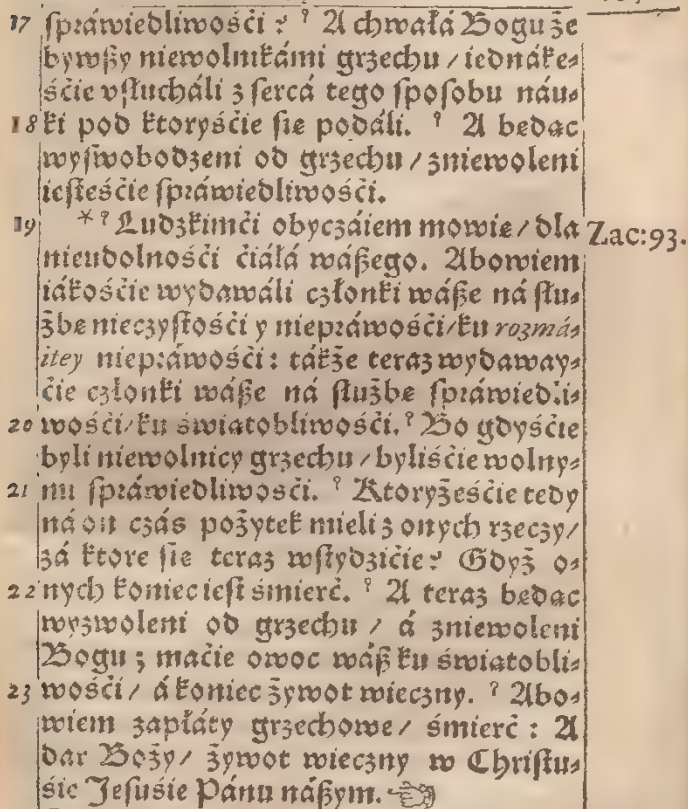 17 ſpráwiedliwośći? ? A chwałá Bogu że
bywßy niewolnikámi grzechu / iednáke-
śćie vſłucháli z ſercá tego ſpoſobu náu-
18 ki pod ktoryśćie ſie podáli. ? A bedac
wyſwobodzeni od grzechu / zniewoleni
ieſteśćie ſpráwiedliwośći.
19 * ? Ludzkimći obyczáiem mowie / dla Zac:93.
nieudolnośći ćiáłá wáßego. Abowiem
iákośćie wydawáli członki wáße ná ſłu-
żbe nieczyſtośći y niepráwośći / ku rozmá-
itey niepráwośći: tákże teraz wydaway-
ćie członki wáße ná ſłużbe ſpráwiedli-
20 wośći / ku światobliwośći. ? Bo gdyśćie
byli niewolnicy grzechu / byliśćie wolny-
21 mi ſpráwiedliwośći. ? Ktoryżeśćie tedy
ná on czás pożytek mieli z onych rzeczy /
zá ktore ſie teraz wſtydzićie? Gdyż o-
22 nych koniec ieſt śmierć. ? A teraz bedac
wyzwoleni od grzechu / á zniewoleni
Bogu; maćie owoc wáß ku świątobli-
23 wośći / á koniec żywot wieczny. ? Abo-
wiem zapłáty grzechowe / śmierć: A
dar Boży / żywot wieczny w Chriſtu-
śie Jeſuśie Pánu náßym.